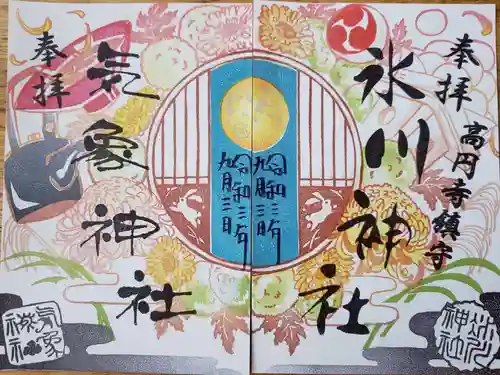 奉拝
高円寺鎮守
氷川神社
令和三年
氷川
神社
奉拝
気象神社
令和三年
気象
神社